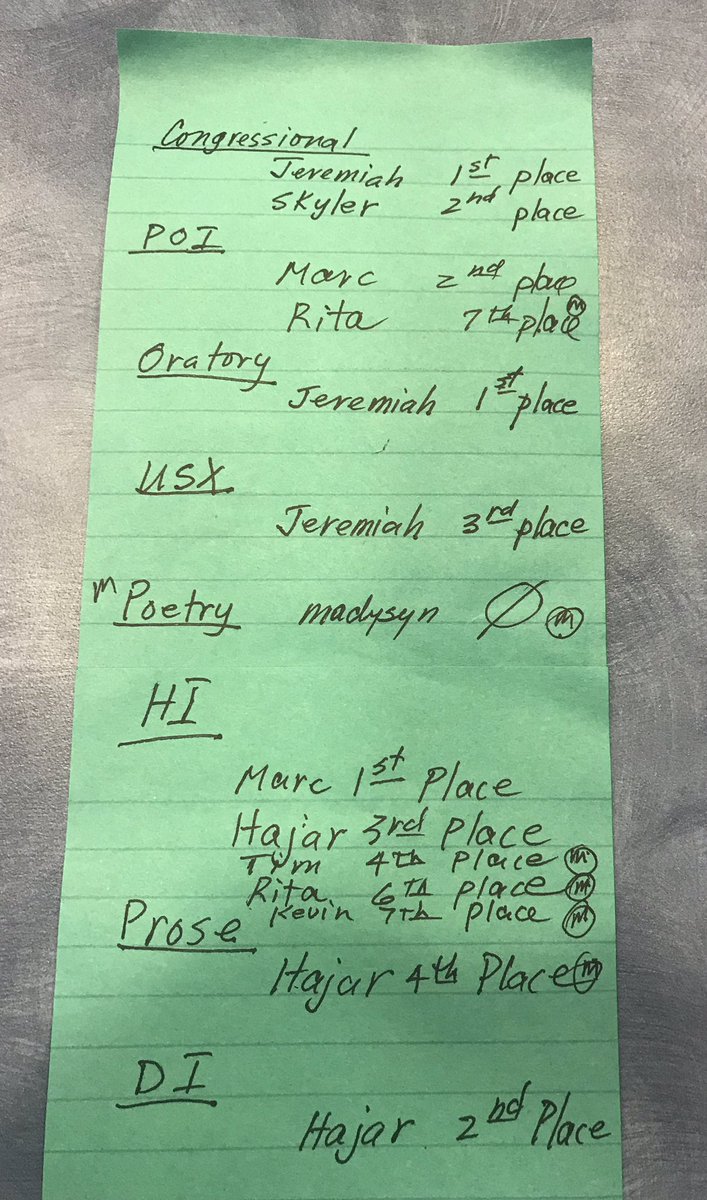 Congressional
Jeremiah 1st place
Skyler 2nd place
POI
Marc 2nd place
Rita 7th place m
Oratory
Jeremiah 1st place
USX
Jeremiah 3rd place
m Poetry madysyn Ø m
HI
Marc 1st Place
Hajar 3rd Place
Tym 4th Place m
Rita 6th place m
Kevin 7th place m
Prose
Hajar 4th Place m
DI
Hajar 2nd Place